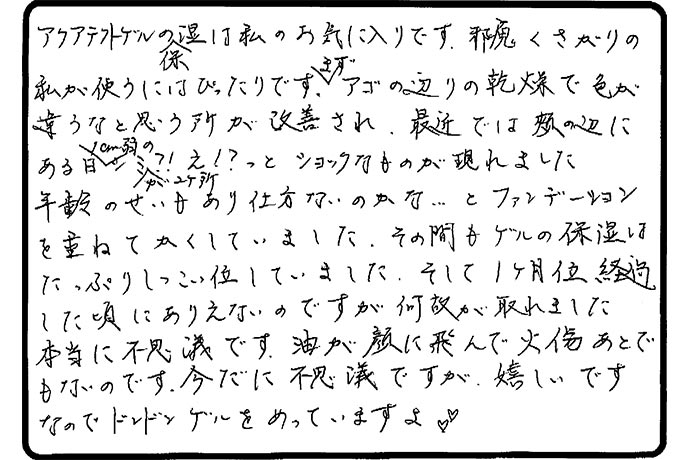 アクアテクトゲルの保湿は私のお気に入りです。邪魔くさがりの
私が使うにはぴったりです。まず、アゴの辺りの乾燥で色が
違うなと思う所が改善され、最近では頬の辺に
ある日1cm弱のシミ?!が2ヶ所え!?っとショックなものが現れました
年齢のせいもあり仕方ないのかな…とファンデーション
を重ねてかくしていました。その間もゲルの保湿は
たっぷりしつこい位していました。そして1ヶ月位経過
した頃にありえないのですが何故か取れました
本当に不思議です。油が顔に飛んで火傷あとで
もないのです。今だに不思議ですが、嬉しいです
なのでドンドンゲルをぬっていますよ♡♡